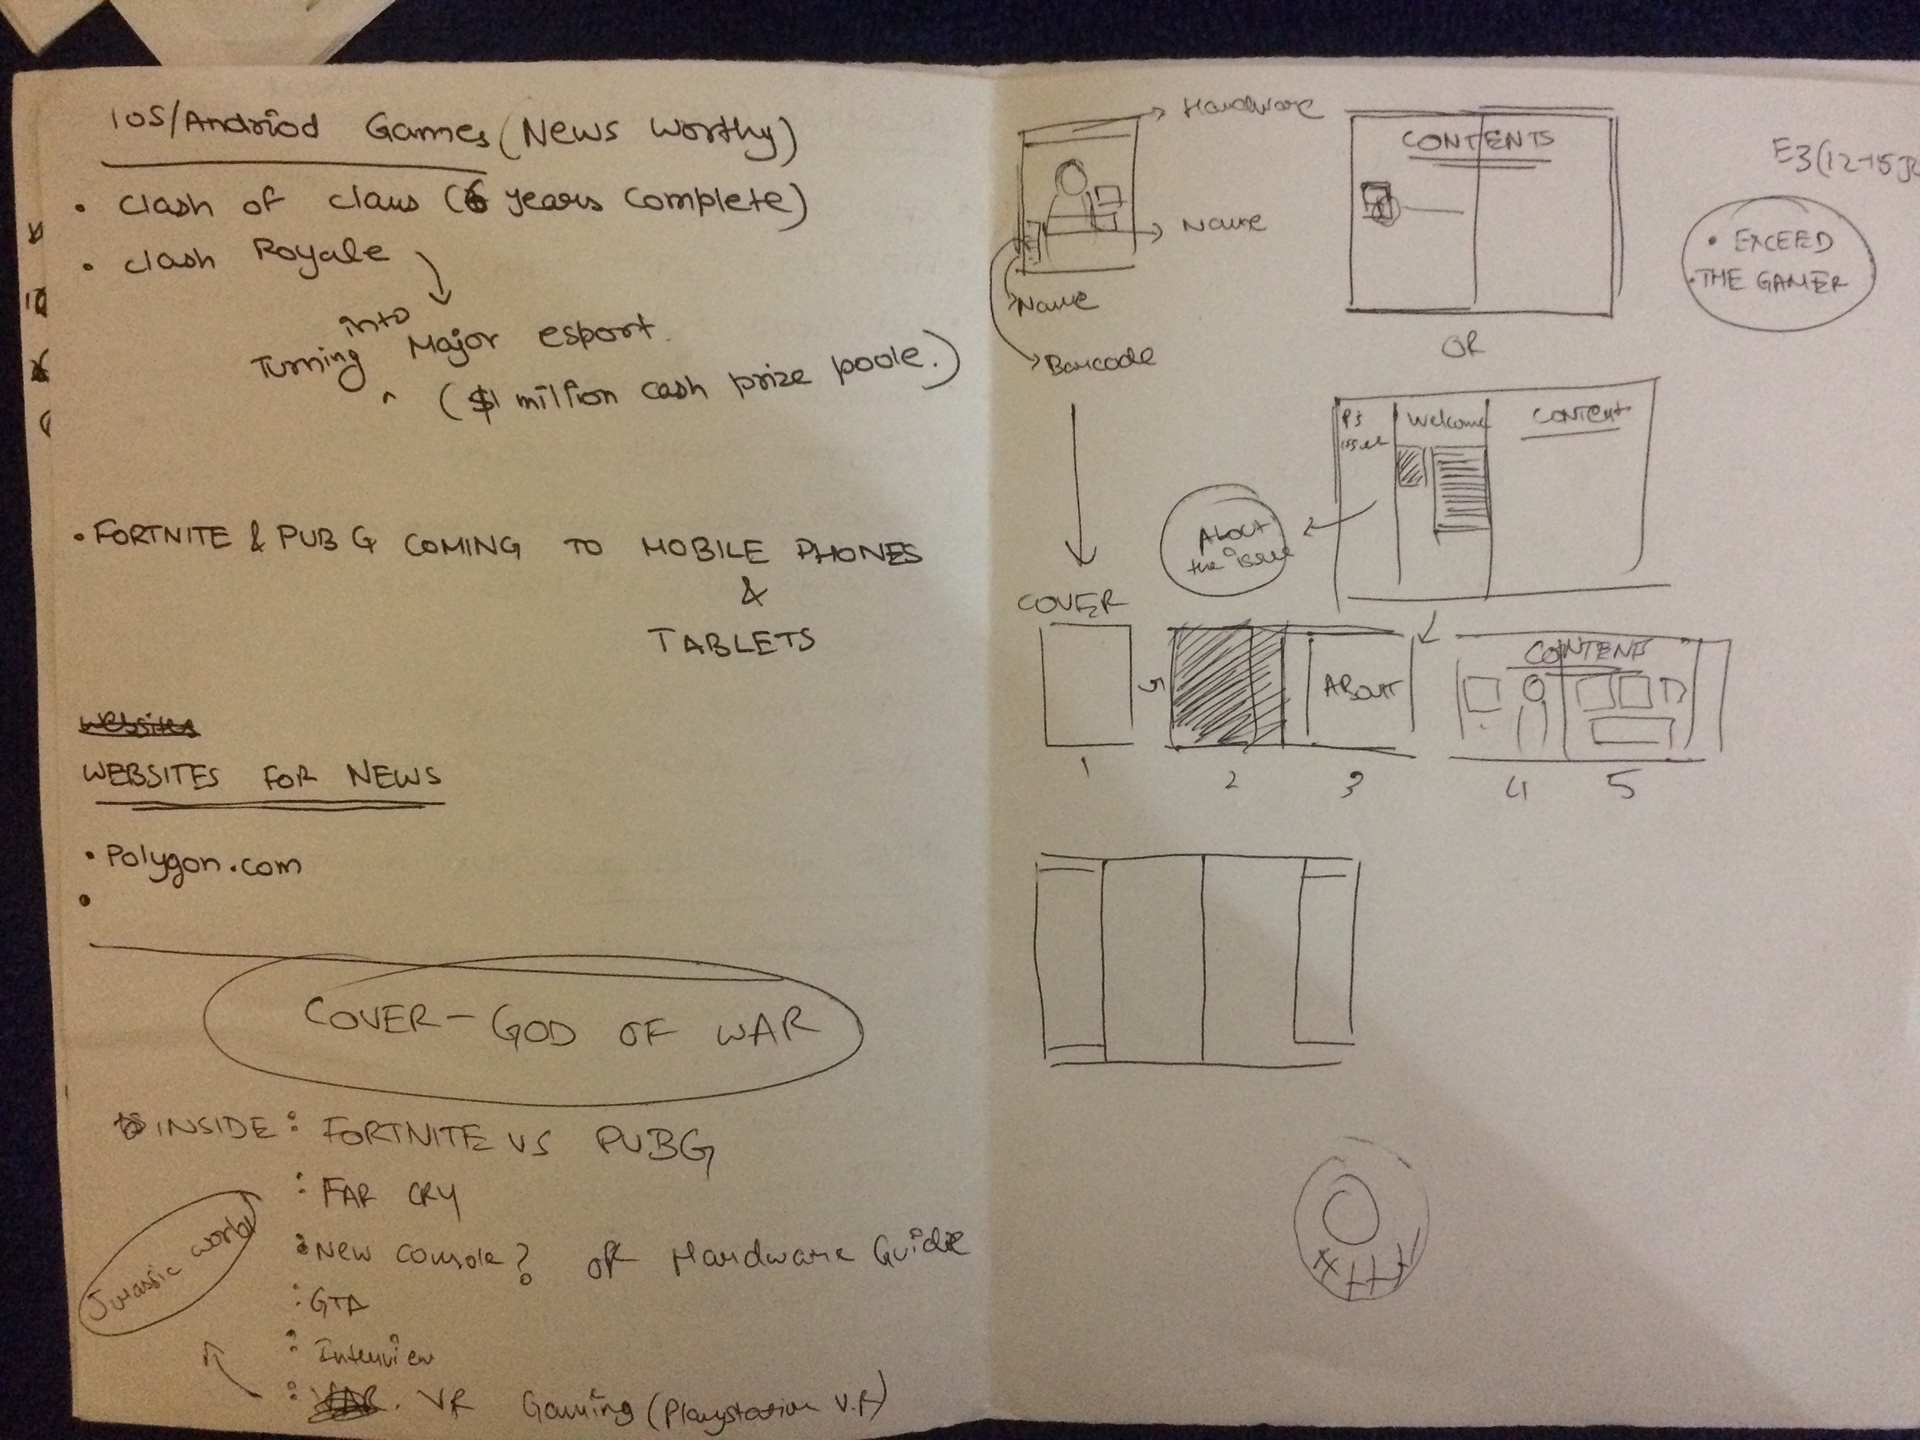 iOS/Andriod Games (News worthy)
• Clash of clans (6 years complete)
• Clash Royale
Turning into Major esport.
($1 million cash prize poole.)
• FORTNITE & PUBG COMING TO MOBILE PHONES
&
TABLETS
websites
WEBSITES FOR NEWS
• Polygon.com
•
COVER - GOD OF WAR
INSIDE : FORTNITE VS PUBG
: FAR CRY
: New console? OR Hardware Guide
: GTA
: Interview
: VR Gaming (Playstation V.R)
Jurassic world
Hardware
Name
Name
Barcode
CONTENTS
OR
E3 (12-15
• EXCEED
• THE GAMER
Welcome
CONTENT
About
the issue
COVER
ABOUT
CONTENTS
1
2
3
4
5